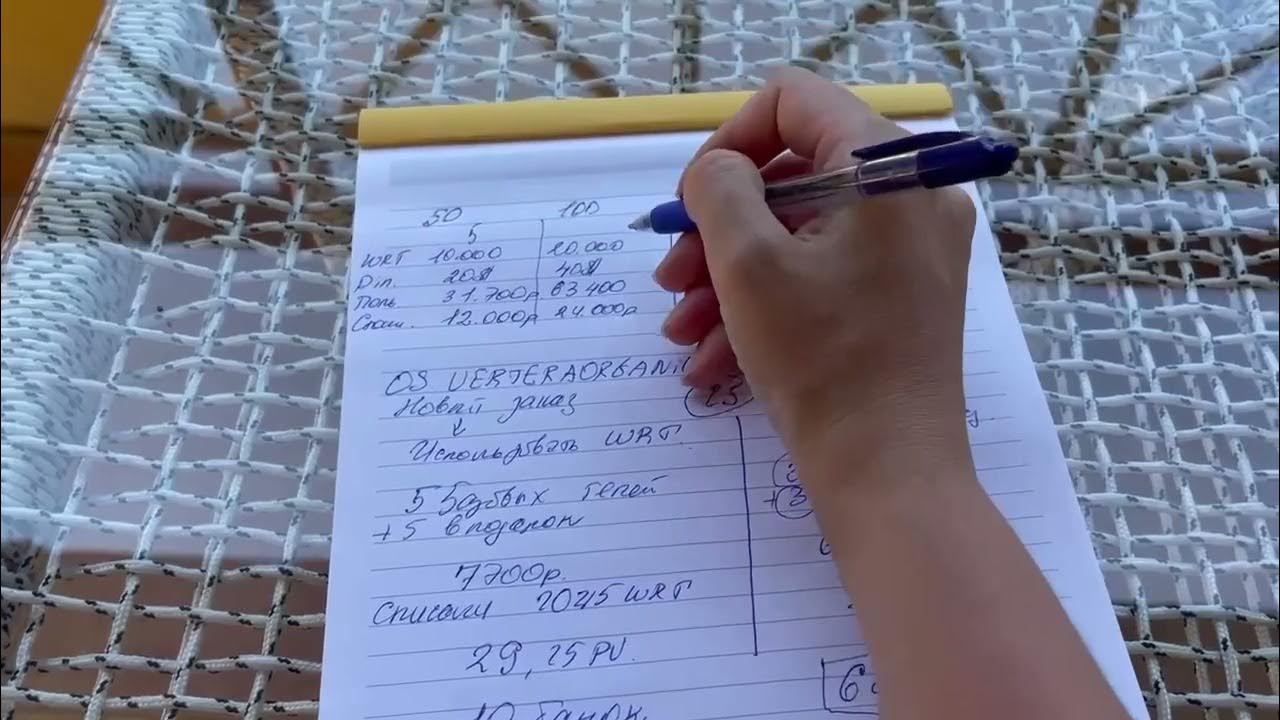 50 100
5
WRT 10.000 20.000
20$ 40$
31.700р 63400
12.000р 24.000р
OS VERTERAORGANIC
Новый заказ
23
Использовать WRT.
5 базовых гелей
+5 в подарок
+3
7700р.
Списали 2025 WRT
29,25 PV.
10 банок.
6